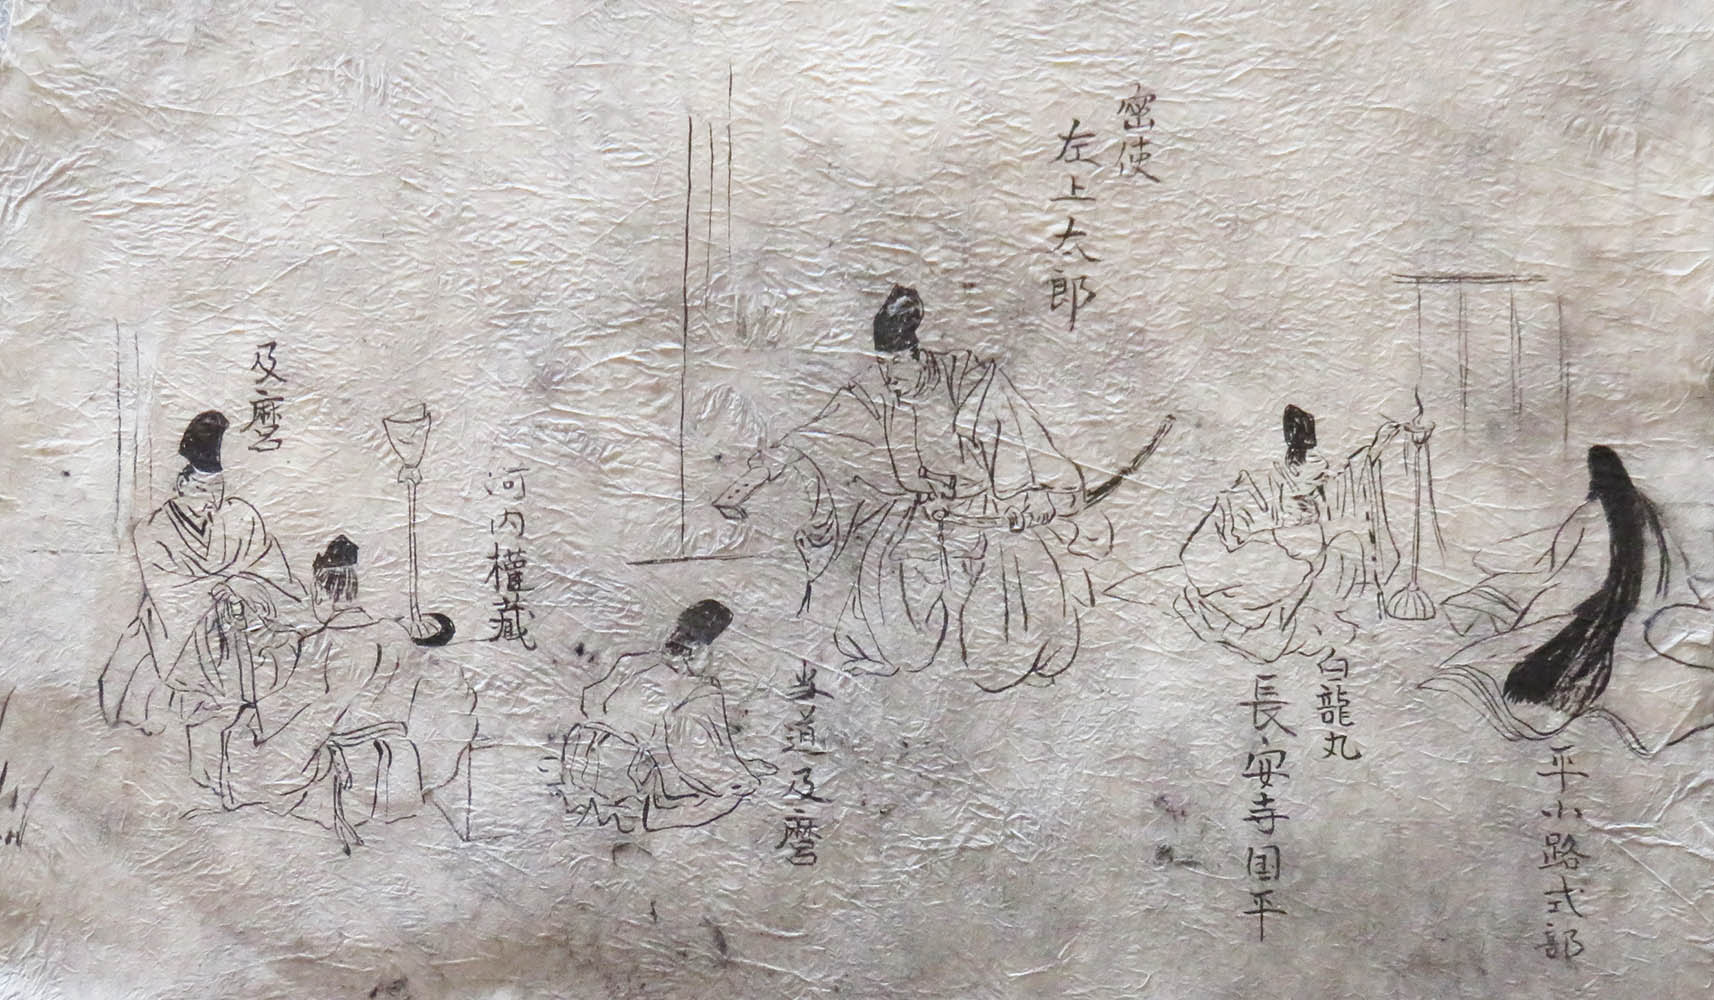 密使
左上太郎
平小路式部
白龍丸
長安寺国平
当道及麿
河内権蔵
及麿